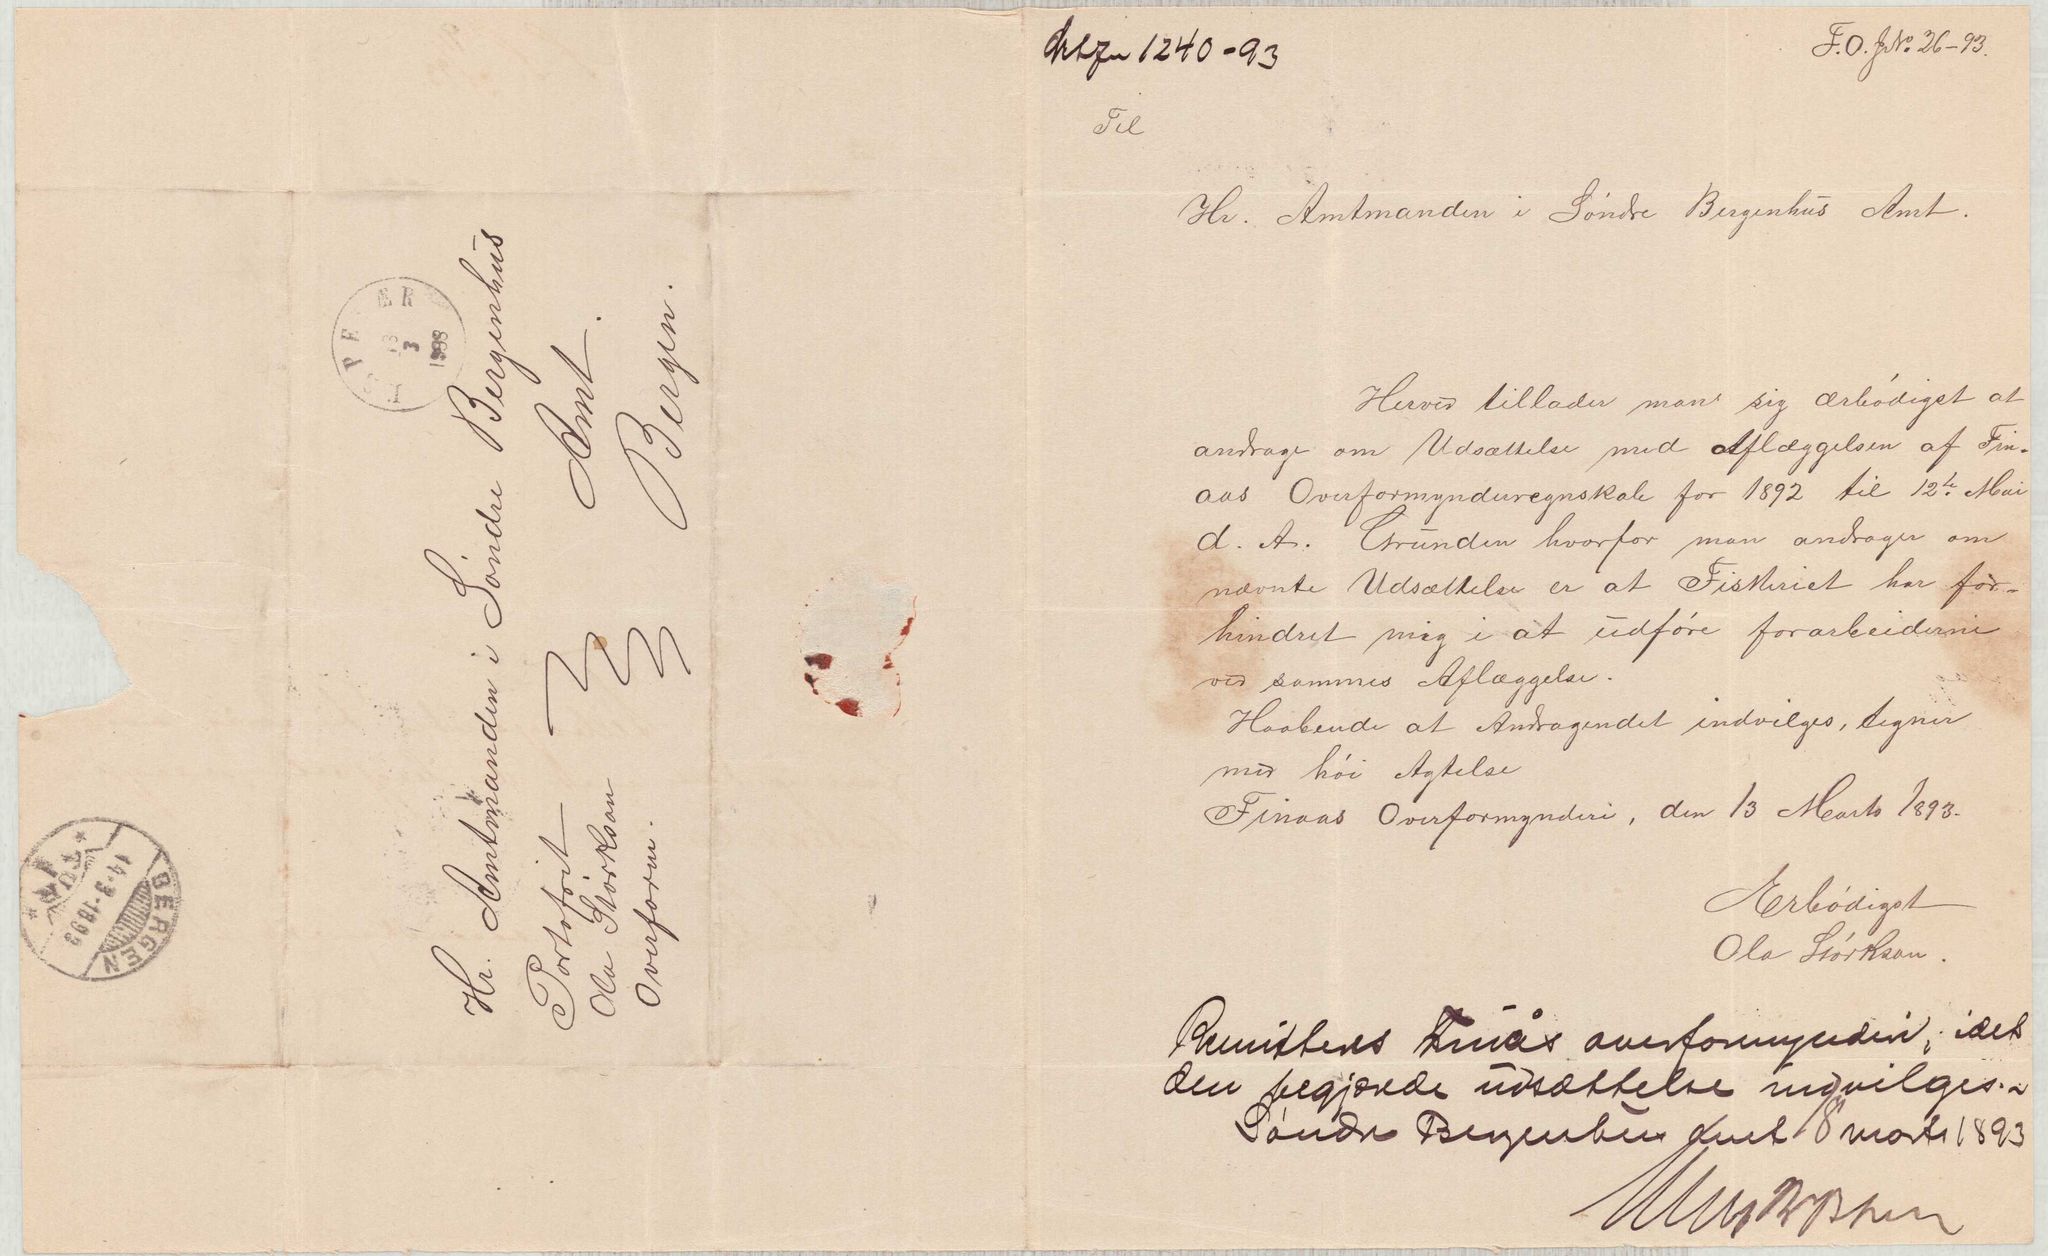 1240-93
F.O. J.No. 26-93.
Til
Hr. Amtmanden i Söndre Bergenhus Amt.
Herved tillader man sig ærbödigst at
andrage om Udsættelse med Aflæggelsen af Fin-
aas Overformynderregnskab for 1892 til 12te Mai
d. A. Grunden hvorfor man andrager om
nævnte Udsættelse er at Fiskeriet har for-
hindret mig i at udföre forarbeiderne
ved sammes Aflæggelse.
Haabende at Andragendet indvilges, tegner
med höi Agtelse
Finaas Overformynderi, den 13 Marts 1893.
Ærbödigst
Ola Störkson.
Remitteres Finås overformynderi, idet
den begjærde udsættelse indvilges.
Söndre Bergenhus amt 18 marts 1893
Hr. Amtmanden i Söndre Bergenhus
Amt.
Bergen.
Portofrit
Ola Störkson
Overform.
ESPEVÆR
13
3
1893
BERGEN
14-3-1893
TUR